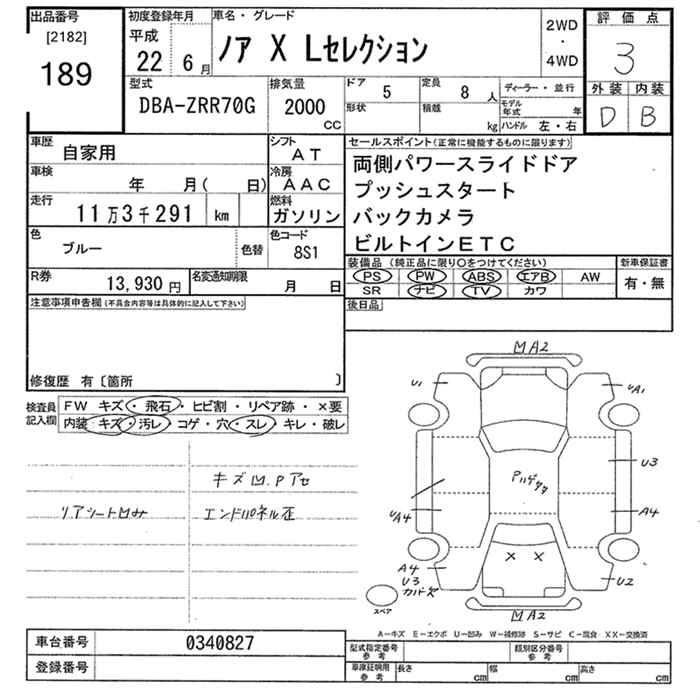 出品番号
[2182]
189
初度登録年月
平成
22 6月
車名・グレード
ノア X Lセレクション
2WD
・
4WD
評価点
3
外装 内装
D B
型式
DBA-ZRR70G
排気量
2000
CC
ドア
5
定員
8 人
形状
積載
kg
ディーラー・並行
モデル年式 年
ハンドル 左・右
車歴
自家用
シフト
AT
車検
年 月( 日)
冷房
AAC
走行
11万3千291 km
燃料
ガソリン
色
ブルー
色替
色コード
8S1
R券
13,930円
名変通知期限
月 日
セールスポイント(正常に機能するものに限ります)
両側パワースライドドア
プッシュスタート
バックカメラ
ビルトインETC
装備品 (純正品に限り○をつけてください)
PS PW ABS エアB AW
SR ナビ TV カワ
新車保証書
有・無
後日品
注意事項申告欄(不具合内容等は具体的に記入して下さい)
修復歴 有〔箇所 〕
検査員
記入欄
FW キズ・飛石・ヒビ割・リペア跡・×要
内装 キズ・汚レ・コゲ・穴・スレ・キレ・破レ
キズ凹.Pアセ
リアシート凹み
エンドパネル歪
凹A2
U1
UA1
U3
UA4
A4
A4
U3
U2
凹A2
××
スペア
A-キズ E-エクボ U-凹み W-補修跡 S-サビ C-腐食 XX-交換済
車台番号
0340827
登録番号
型式指定番号
参考
類別区分番号
参考
車庫証明用
参考
長さ cm
幅 cm
高さ cm